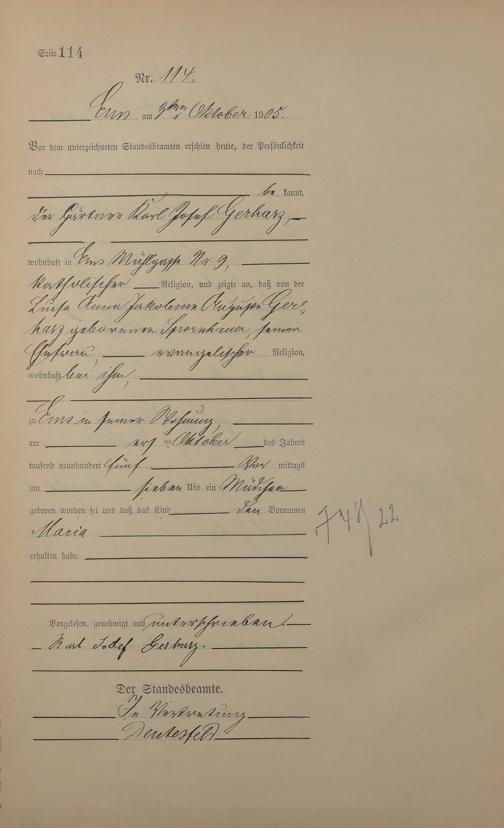 Seite 114
Nr. 114.
Ems am 3ten Oktober 1905.
Vor dem unterzeichneten Standesbeamten erschien heute, der Persönlichkeit
nach
be kannt,
der Gärtner Karl Josef Gerharz,
wohnhaft in Ems Mühlgasse Nr 9,
katholischer Religion, und zeigte an, daß von der
Luise Anna Jakobine Auguste Ger-
harz geborenen Spornhauer, seiner
Ehefrau, evangelischer Religion,
wohnhaft bei ihm,
zu Ems in seiner Wohnung,
am ersten Oktober des Jahres
tausend neunhundert fünf Vor mittags
um sieben Uhr ein Mädchen
geboren worden sei und daß das Kind den Vornamen
Maria
erhalten habe.
Vorgelesen, genehmigt und unterschrieben.
Karl Josef Gerharz.
Der Standesbeamte.
In Vertretung
22